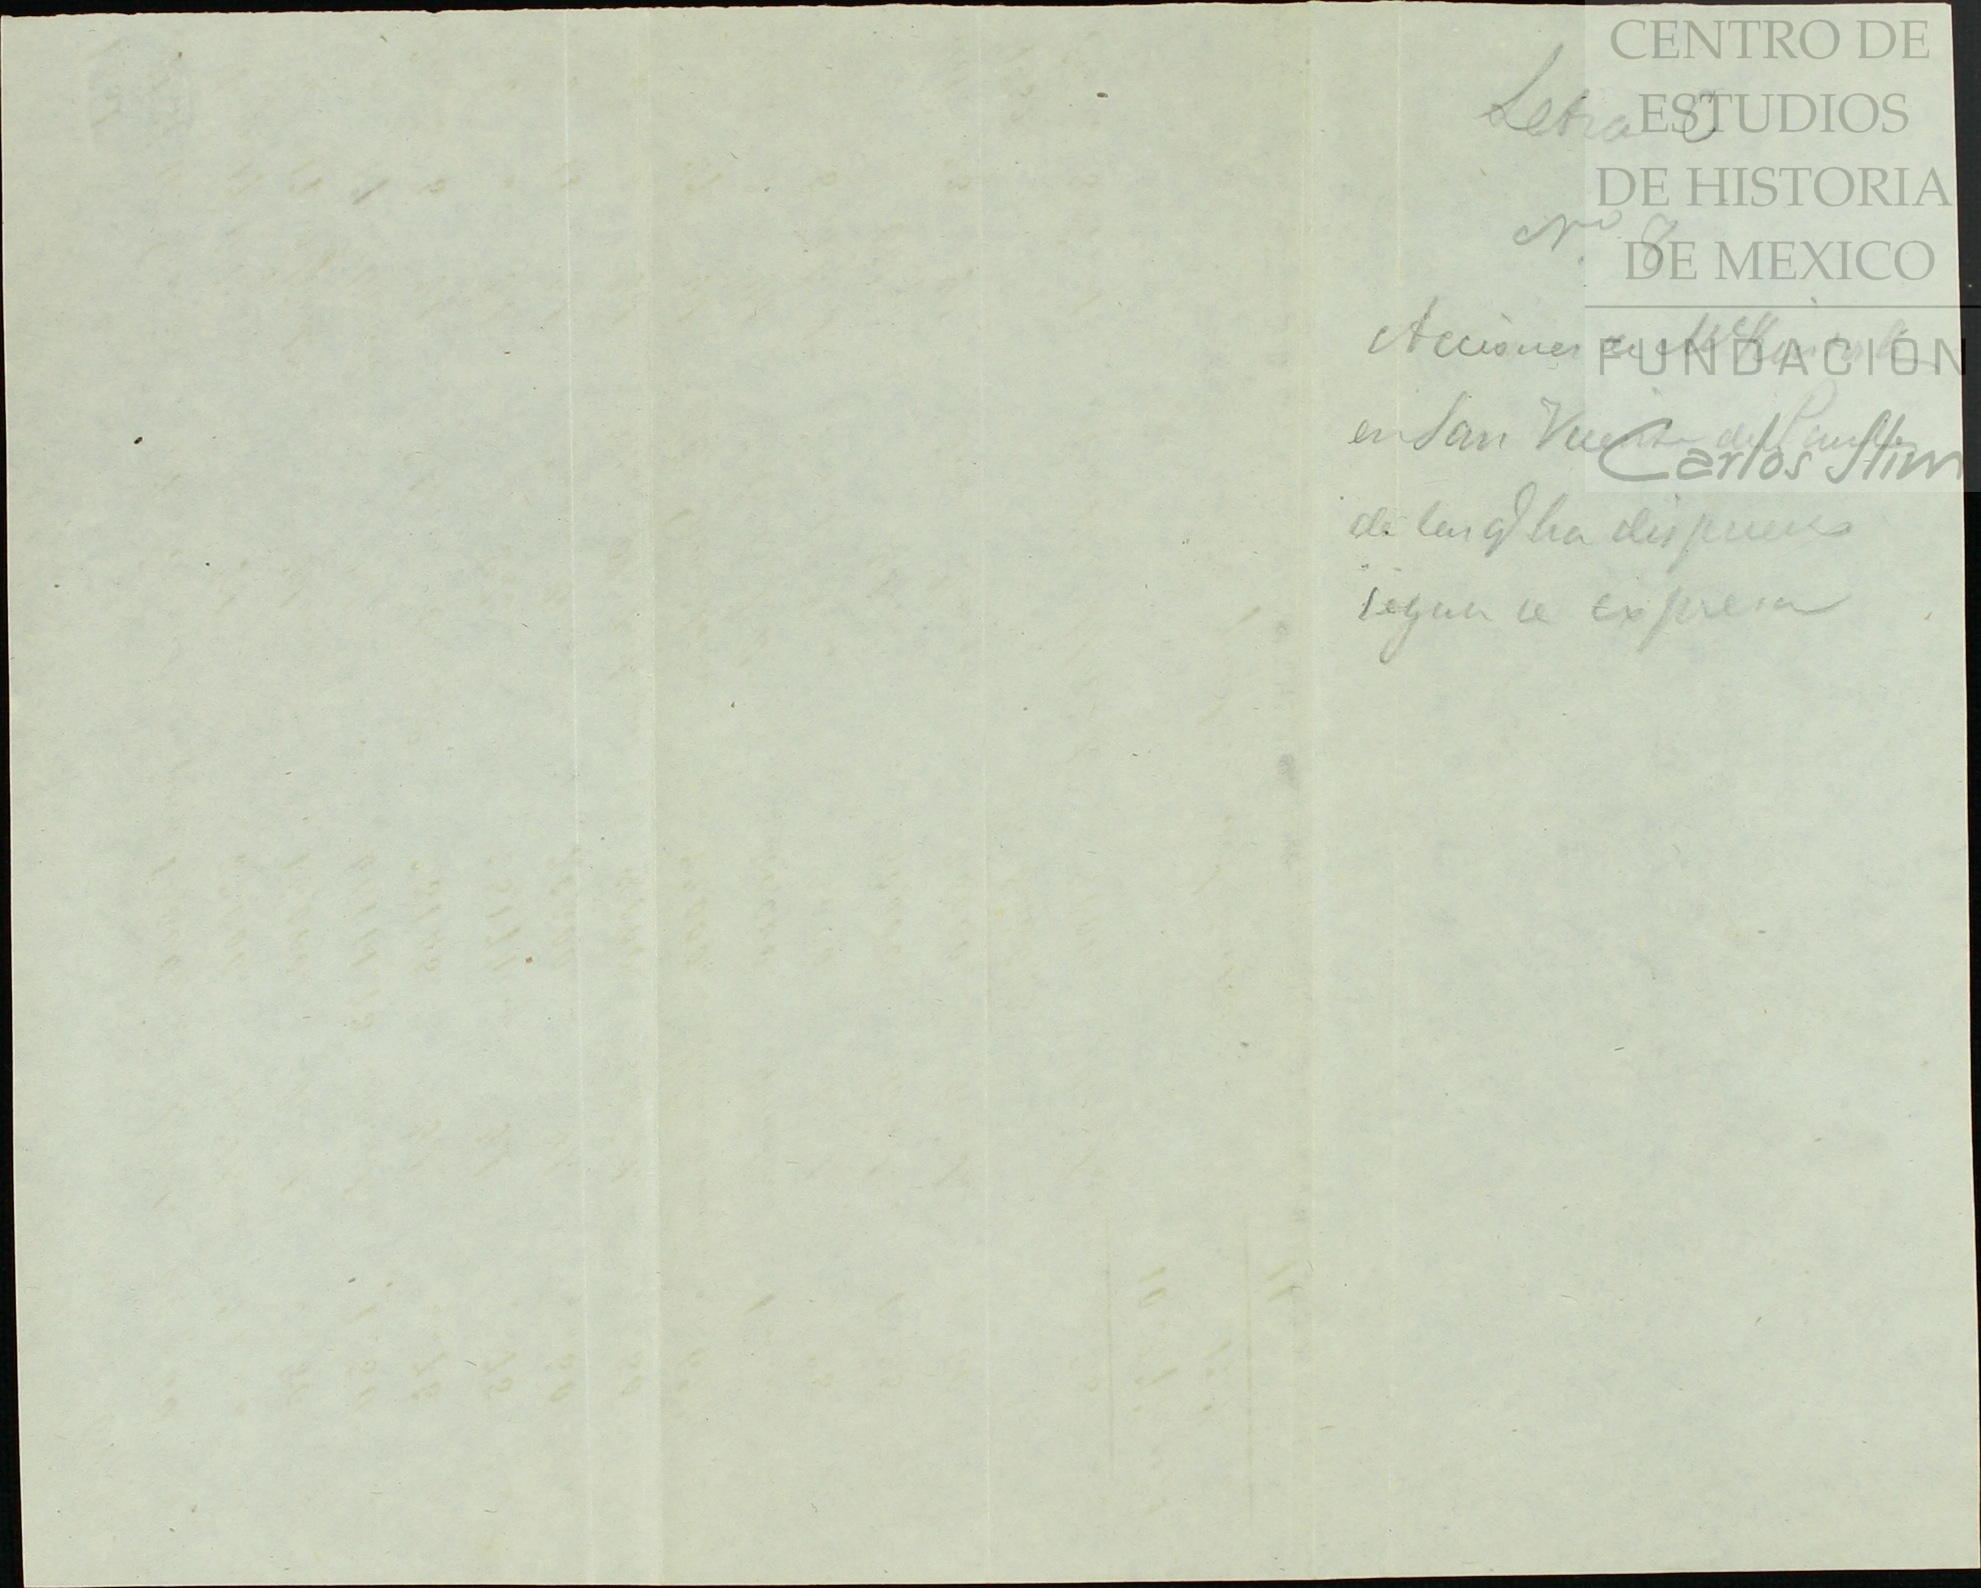 Letra C
No. 8
Acciones
en San Vicente del
de las q ha dispuesto
segun se expresa
CENTRO DE
ESTUDIOS
DE HISTORIA
DE MEXICO
FUNDACIÓN
Carlos Slim